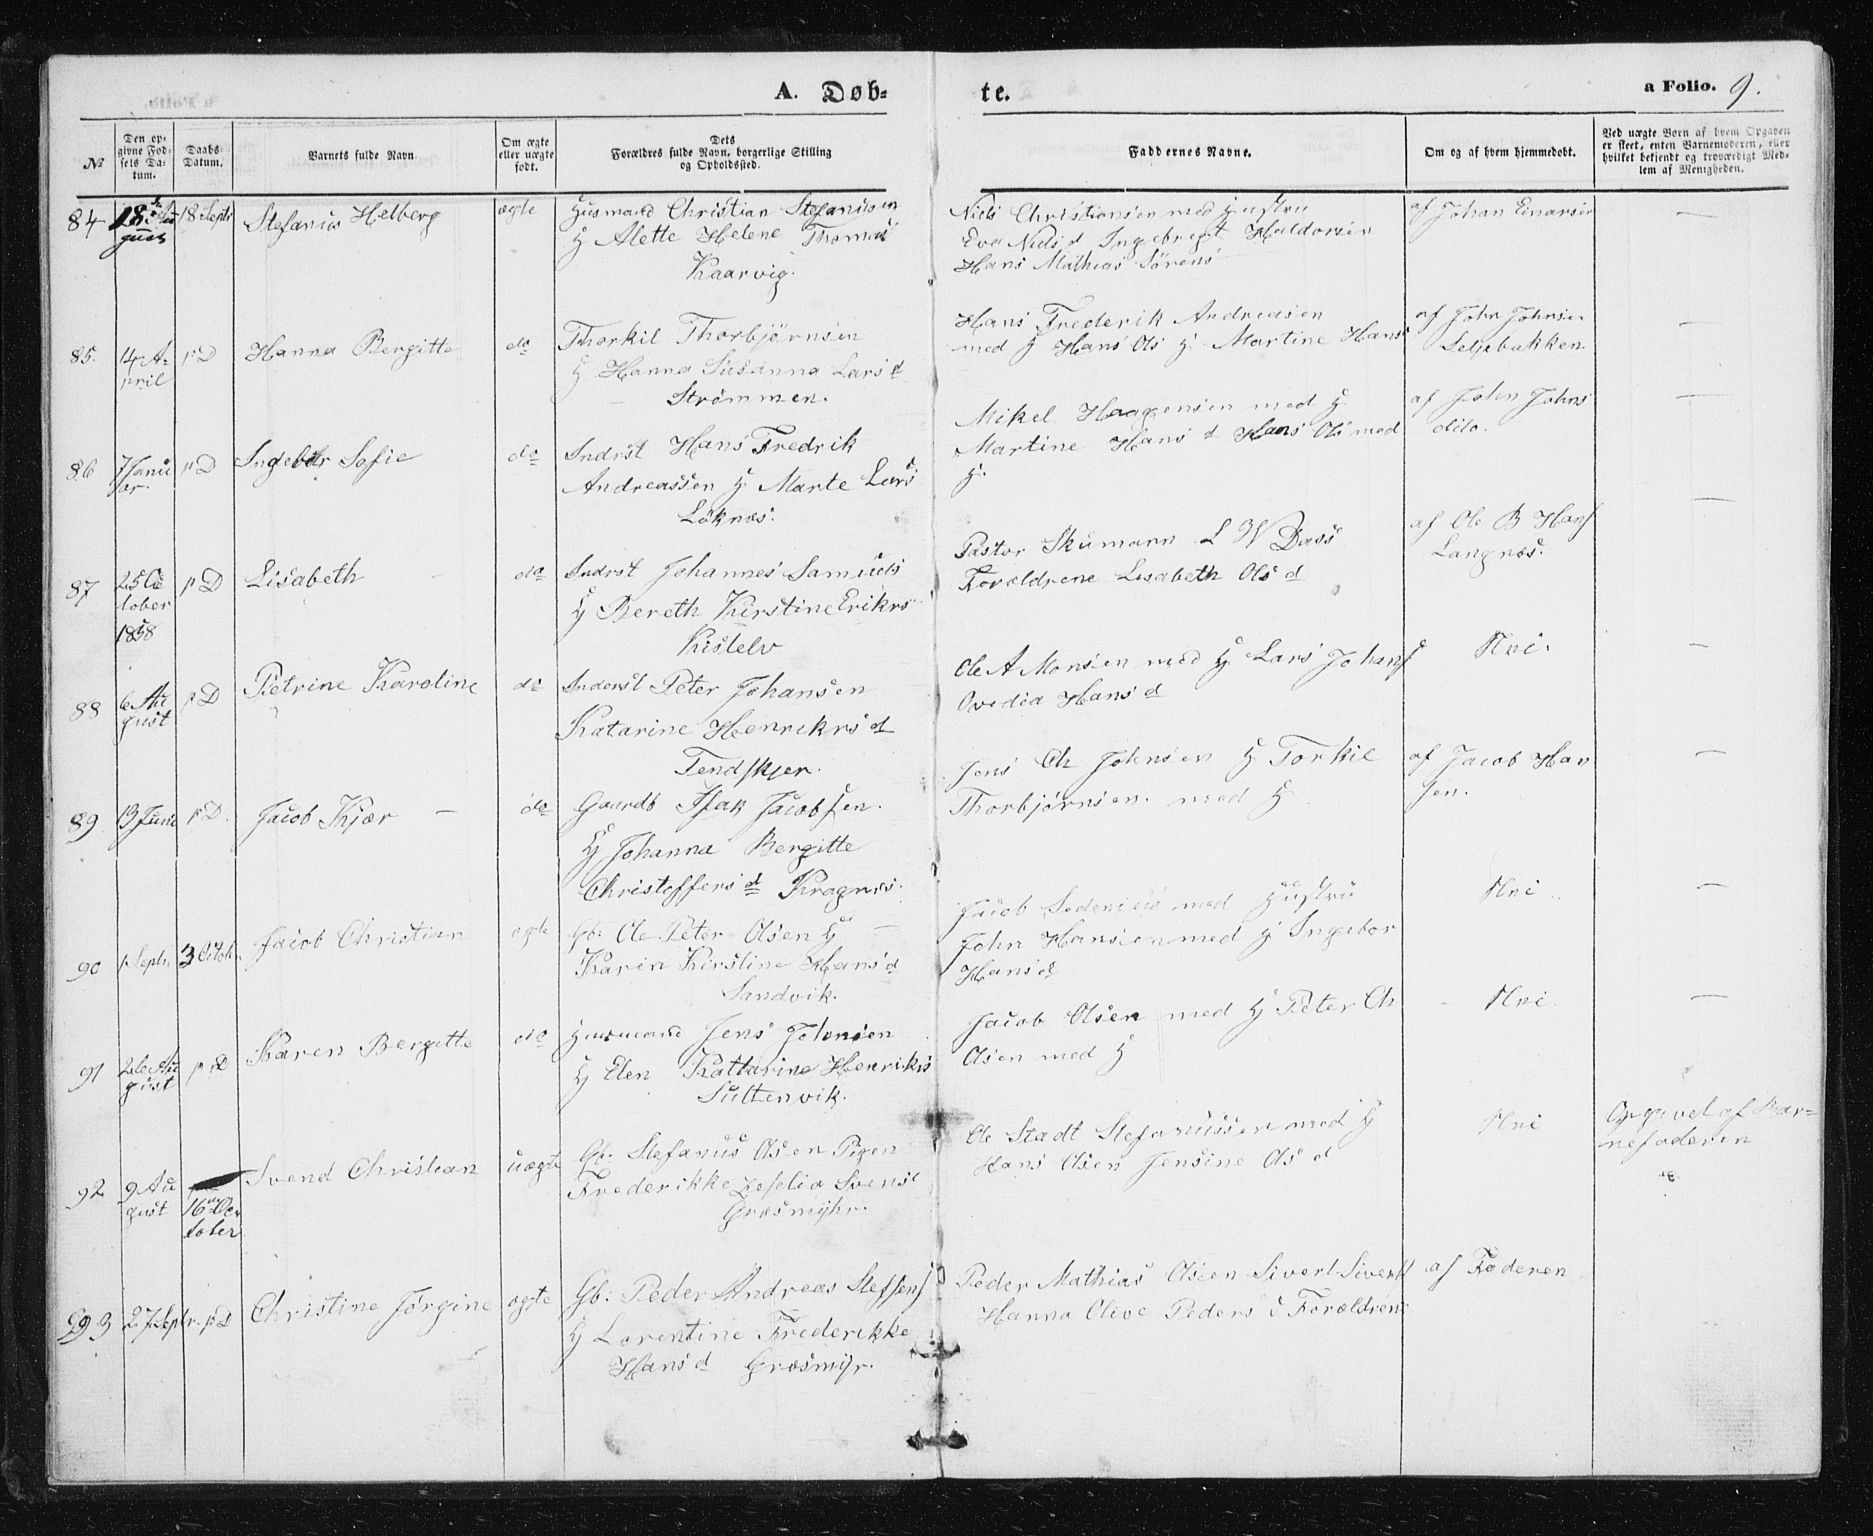 A. Døb-
te.
a Folio. 9.
No
Den op-
givne Fød-
sels Da-
tum.
Daabs-
Datum.
Barnets fulde Navn
Om ægte
eller uægte
født.
Dets
Forældres fulde Navn, borgerlige Stilling
og Opholdssted.
Faddernes Navne.
Om og af hvem hjemmedøbt.
Ved uægte Børn af hvem Opgaven
er skeet, enten Barnemoderen, eller
hvilket bekjendt og troværdigt Med-
lem af Menigheden.
84 18 Au
gust
18 Septr
Stefanus Helberg
ægte
Husmand Christian Stefanusen
H Alette Helene Thomas
Kaarvig.
Niels Christiansen med Hustru
Eva Niels d Ingebregt Haldorsen
Hans Mathias Sørens
af Johan Einarsen
—
85. 14 A-
pril
p D
Hanna Bergitte
do
Thorkil Thorbjørnsen
H Hanna Susanna Lars d
Strømmen.
Hans Frederik Andreasen
med H Hans Ols H Martine Hans
af John Johnsen
Seljebakken.
—
86 7 Janu
ar.
p D
Ingebor Sofie
do
Indrst Hans Fredrik
Andreassen H Marte Lars
Løknæs.
Mikel Haagensen med H
Martine Hans d Hans Ols med
H.
af John Johns
dito.
—
87 25 Oc
tober
1858
p D
Lisabeth
do
Indrst Johannes Samuels
H Bereth Kirstine Erikrs
Kistelv
Pastor Skumann L W Dass
Forældrene Lisabeth Ols d
af Ole B Hans
Langnes.
—
88 6 Au
gust
p D
Petrine Karoline
do
Inderst Peter Johansen
Katarine Henrikrs d
Tendskjer.
Ole A Monsen med H Lars Johans
Ovedia Hans d
Nei.
—
89 13 Juni
p D.
Jacob Kjær —
do
Gaardb Isak Jacobsen.
H Johanna Bergitte
Christoffers d Kragnæs.
Jens Ch Johnsen H Torkil
Thorbjørnsen. med H
af Jacob Han
sen.
—
90 1 Septr
3 Octobr
Jacob Christian
ægte
Gb: Ole Peter Olsen H —
Karen Kirstine Hans d
Sandvik.
Jacob med Hustru
John Hansen med H Ingebor
Hans d
Nei
—
91 26 Au
gust
p D
Karen Bergette
do
Husmand Jens Johnsen
H Elen Kattarine Henrikrs
Sultenvik.
Jacob Olsen med H Peter Ch
Olsen med H
Nei.
—
92 9 Au
gust
16 Oc
tober
Svend Christean
uægte
Gb: Stefanus Olsen Pigen
Frederikke Svens d
Græsmyhr.
Ole Stadt Stefanussen med H
Hans Olsen Jensine Ols d
Nei
Opgivet af Bar-
nefaderen
93 27 Septr.
p D
Christine Jørgine
ægte
Gb: Peder Andreas Steffens
H Lorentine Frederikke
Hans d Græsmyr.
Peder Mathias Olsen Sivert Siverts
Hanna Olive Peders d Forældrene
af Faderen